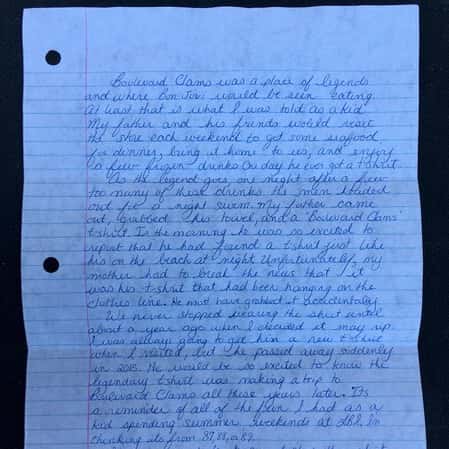 Boulevard Clams was a place of legends
and where Bon Jovi would be seen eating.
At least that is what I was told as a kid.
My father and his friends would visit
the store each weekend to get some seafood
for dinner, bring it home to us, and enjoy
a few frozen drinks. One day he even got a t-shirt.
As the legend goes one night after a few
too many of those drinks the men headed
out for a night swim. My father came
out, grabbed his towel, and a "Boulevard Clams"
t-shirt. In the morning he was so excited to
report that he had found a t-shirt just like
his on the beach at night. Unfortunately, my
mother had to break the news that it
was his t-shirt that had been hanging on the
clothes line. He must have grabbed it accidentally.
We never stopped wearing the shirt until
about a year ago when I decided it
I was always going to get him a new t-shirt
when I visited, but he passed away suddenly
in 2015. He would be so excited to know the
legendary t-shirt was making a trip to
Boulevard Clams all these years later. Its
a reminder of all of the fun I had as a
kid spending summer weekends at LBI. Im
thinking its from 87, 88, or 89.